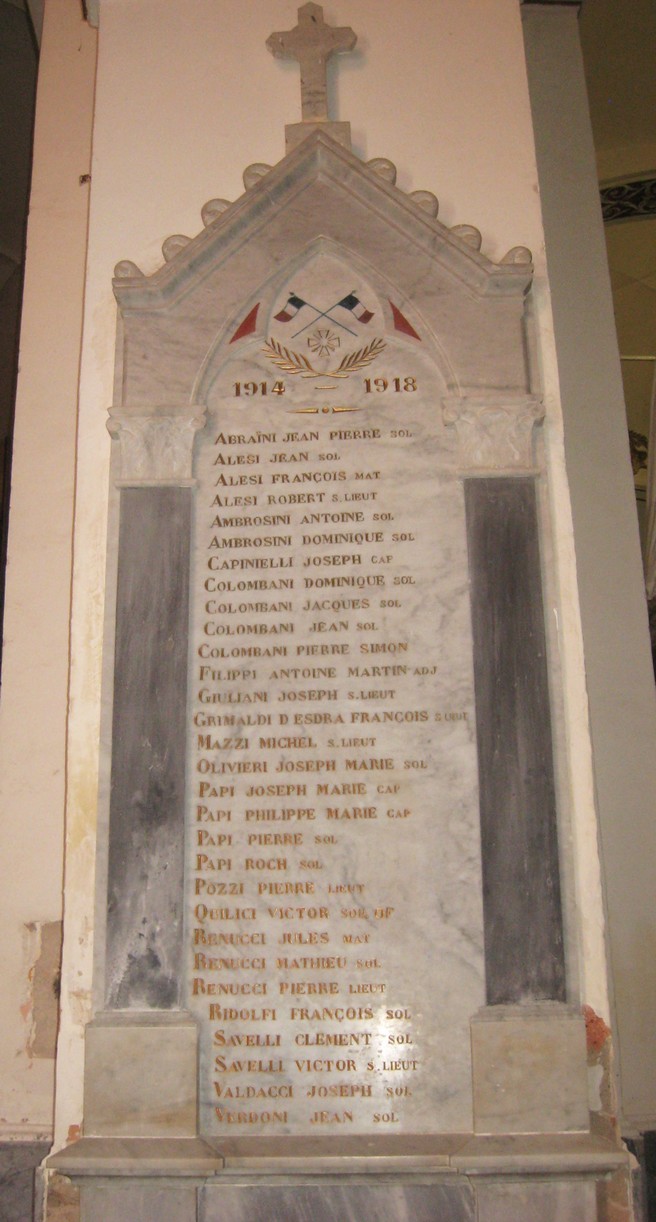 1914 1918
ABRAÏNI JEAN PIERRE SOL
ALESI JEAN SOL
ALESI FRANÇOIS MAT
ALESI ROBERT S.LIEUT
AMBROSINI ANTOINE SOL
AMBROSINI DOMINIQUE SOL
CAPINIELLI JOSEPH CAP
COLOMBANI DOMINIQUE SOL
COLOMBANI JACQUES SOL
COLOMBANI JEAN SOL
COLOMBANI PIERRE SIMON
FILIPPI ANTOINE MARTIN ADJ
GIULIANI JOSEPH S.LIEUT
GRIMALDI D'ESDRA FRANÇOIS
MAZZI MICHEL S.LIEUT
OLIVIERI JOSEPH MARIE SOL
PAPI JOSEPH MARIE CAP
PAPI PHILIPPE MARIE CAP
PAPI PIERRE SOL
PAPI ROCH SOL
POZZI PIERRE LIEUT
QUILICI VICTOR
RENUCCI JULES MAT
RENUCCI MATHIEU SOL
RENUCCI PIERRE LIEUT
RIDOLFI FRANÇOIS SOL
SAVELLI CLÉMENT SOL
SAVELLI VICTOR S.LIEUT
VALDACCI JOSEPH SOL
VERDONI JEAN SOL